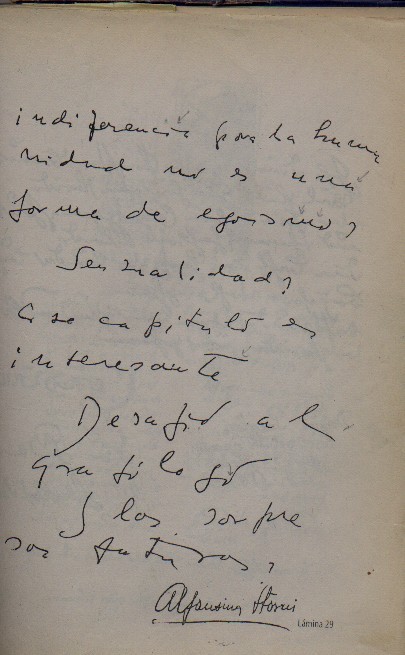 indiferencia por la huma
nidad no es una
forma de egoismo?
Sensualidad?
Ese capítulo es
interesante
Desafío al
grafólogo
y las sorpre
sas futuras.
Alfonsina Storni
Lámina 29